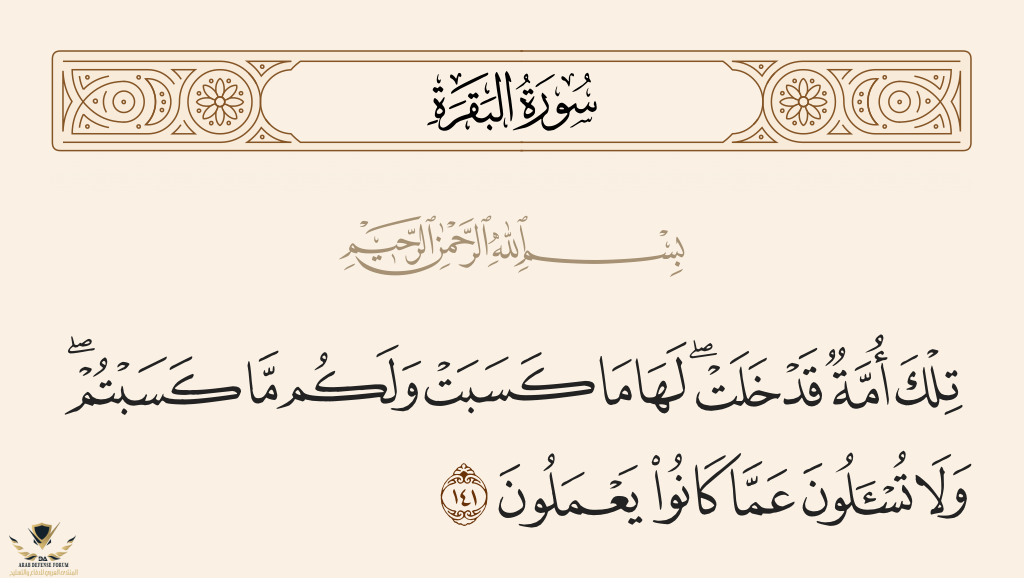 سُورَةُ البَقَرَةِ
بِسْمِ ٱللَّهِ ٱلرَّحْمَٰنِ ٱلرَّحِيمِ
تِلْكَ أُمَّةٌ قَدْ خَلَتْ ۖ لَهَا مَا كَسَبَتْ وَلَكُم مَّا كَسَبْتُمْ ۖ
وَلَا تُسْـَٔلُونَ عَمَّا كَانُوا۟ يَعْمَلُونَ ١٤١
DA
ARAB DEFENSE FORUM
المنتدى العربي للدفاع والتسليح